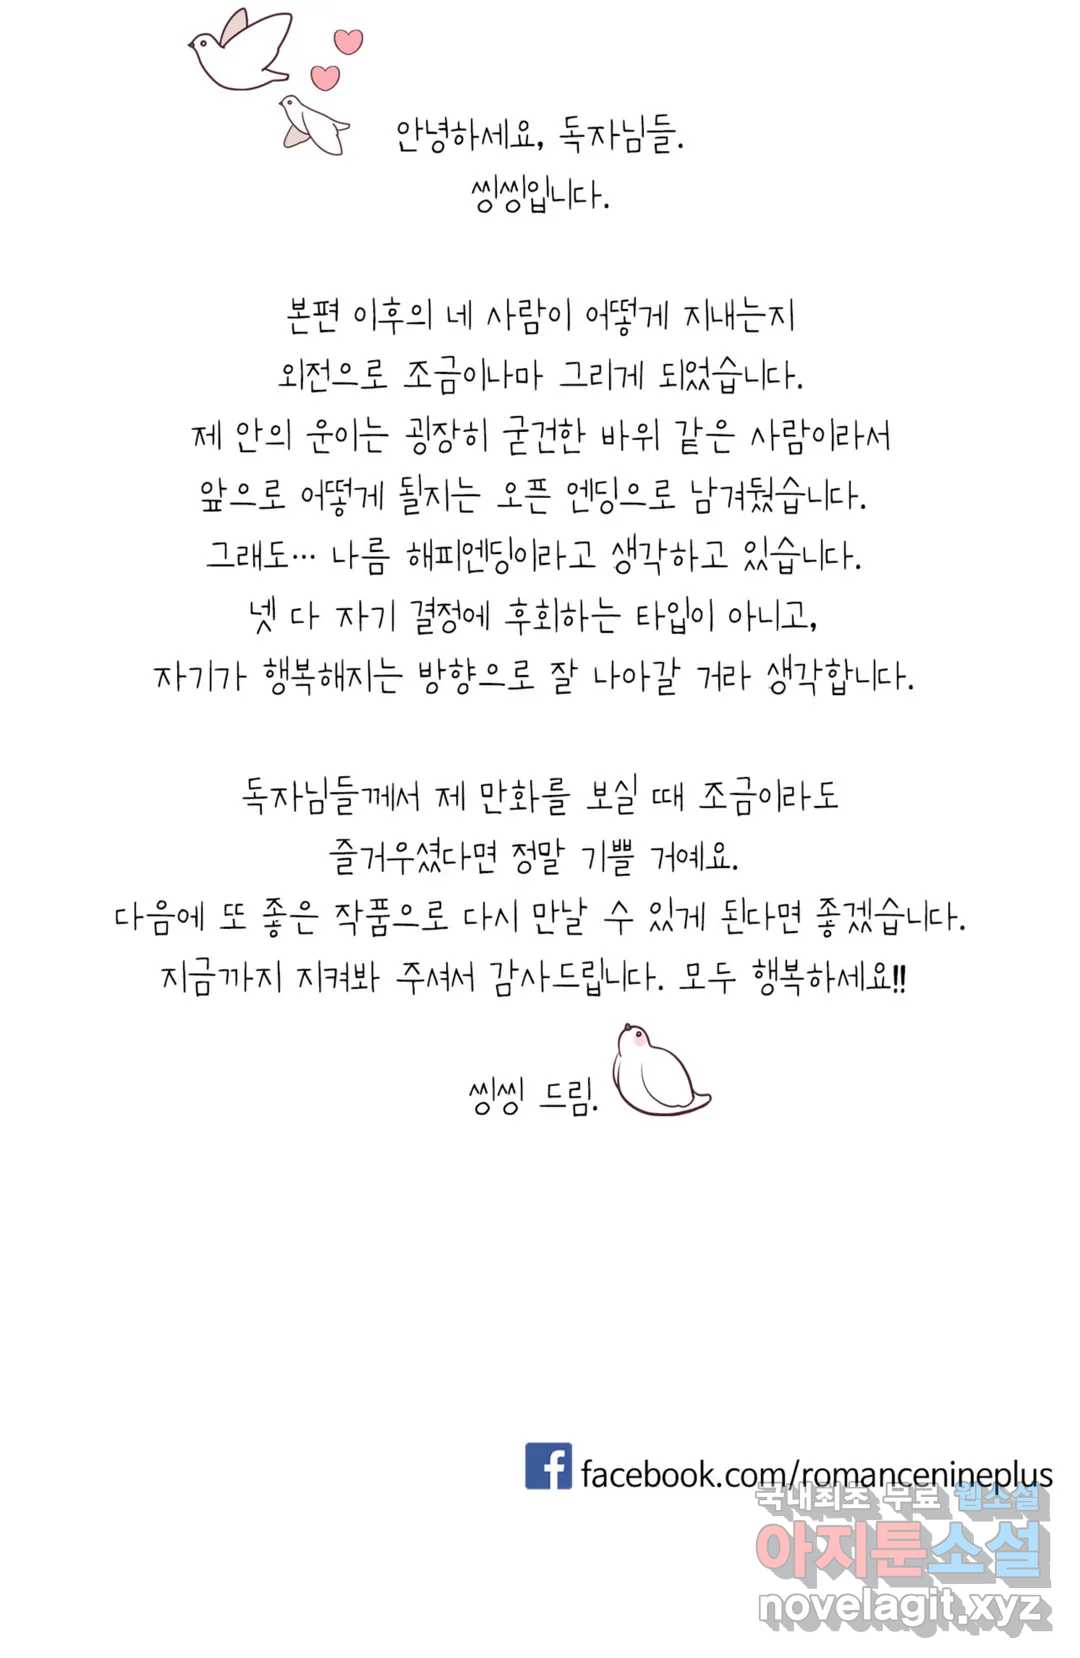 안녕하세요, 독자님들.
씽씽입니다.
본편 이후의 네 사람이 어떻게 지내는지
외전으로 조금이나마 그리게 되었습니다.
제 안의 운이는 굉장히 굳건한 바위 같은 사람이라서
앞으로 어떻게 될지는 오픈 엔딩으로 남겨뒀습니다.
그래도… 나름 해피엔딩이라고 생각하고 있습니다.
넷 다 자기 결정에 후회하는 타입이 아니고,
자기가 행복해지는 방향으로 잘 나아갈 거라 생각합니다.
독자님들께서 제 만화를 보실 때 조금이라도
즐거우셨다면 정말 기쁠 거예요.
다음에 또 좋은 작품으로 다시 만날 수 있게 된다면 좋겠습니다.
지금까지 지켜봐 주셔서 감사드립니다. 모두 행복하세요!!
씽씽 드림.
f facebook.com/romancenineplus
국내최초 무료 웹소설
아지툰소설
novelagit.xyz